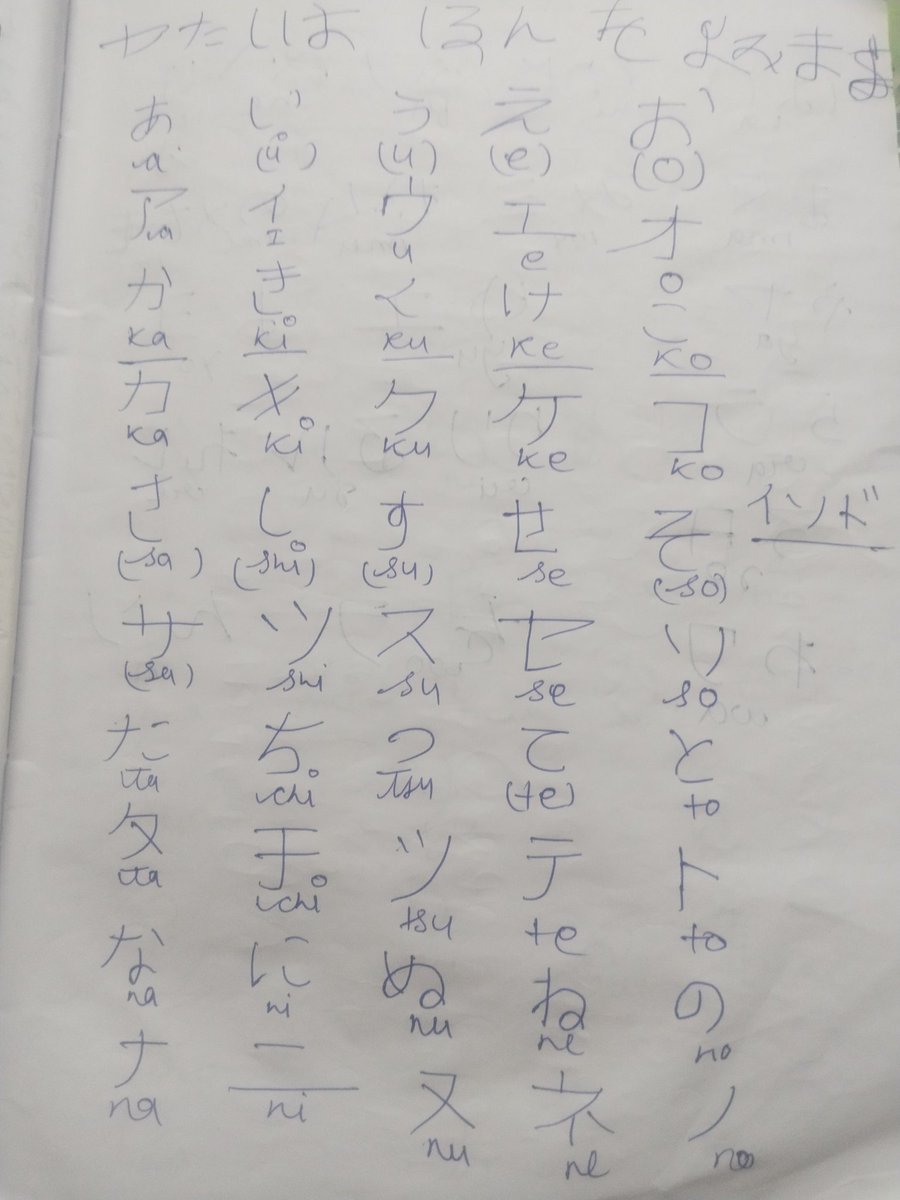 わたしは ほん を よみます
あ い う え お
a (i) (u) (e) (o)
ア イ ウ エ オ
a I u e o
か き く け こ
ka ki ku ke ko
カ キ ク ケ コ
ka ki ku ke ko
さ し す せ そ インド
(sa) (shi) (su) se (so)
サ シ ス セ ソ
(sa) shi su se so
た ち つ て と
ta chi tsu (te) to
タ チ ツ テ ト
ta chi tsu te to
な に ぬ ね の
na ni nu ne no
ナ ニ ヌ ネ ノ
na ni nu ne no